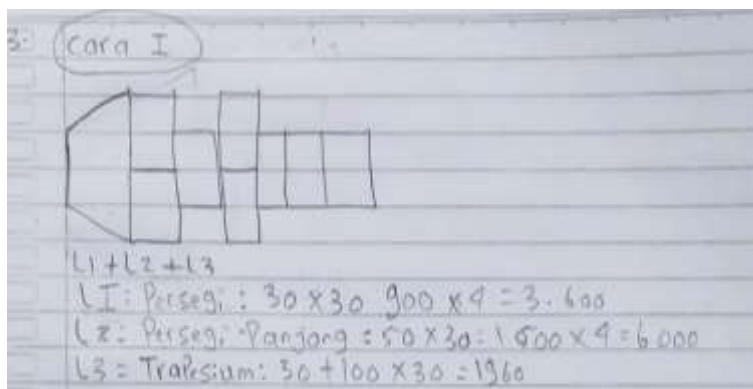 3. Cara I
L1 + L2 + L3
L I : Persegi : 30 x 30 900 x 4 = 3.600
L2 : Persegi Panjang : 50 x 30 : 1500 x 4 = 6000
L3 = Trapesium : 50 + 100 x 30 = 1960